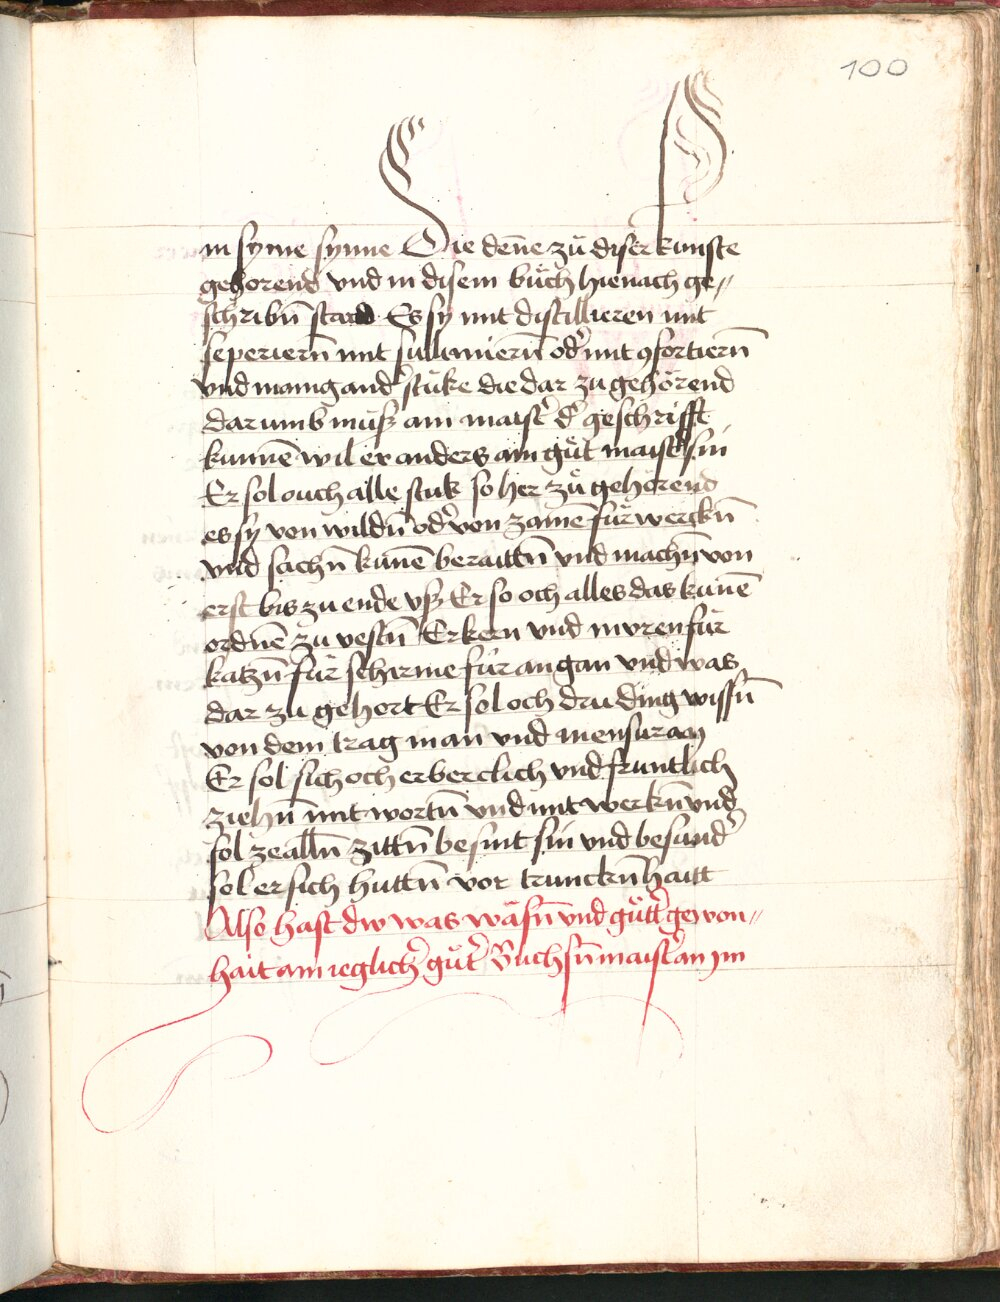 100
in syme synne Die deñe zů diser kunste
gehorend vnd in disem bůch hienach ge〃
schribñ stand Es sy mit distillieren mit
seperierñ mit sullimierñ od' mit ꝯfortierñ
vnd manig and' stuke die dar zu gehörend
darumb můsz ain maist' d' geschrifft
kunnē wil er anders ain gůt maist' sin
Er sol ouch alle stuk so her zů gehörend
es sy von wildñ od' von zamē fürwerckñ
vnd sachñ kunē beraittñ vnd machñ von
erst bis zu ende vsz Er so och alles das kunē
ordnē zu vestñ Erkern vnd muren für
katzñ für schirme für angan vnd was
dar zu gehort Er sol och dru ding wissñ
von dem trag man vnd mensuram
Er sol sich och erberclich vnd fruntlich
ziehñ mit wortñ vnd mit werkñ vnd
sol ze allñ zittñ besint sin vnd besund'
sol er sich huttñ vor trunckñhaitt
Also hast dw was wäsñ vnd gůtt' gewon〃
hait ain ieglich' gůt' Buchsñmaist' an im